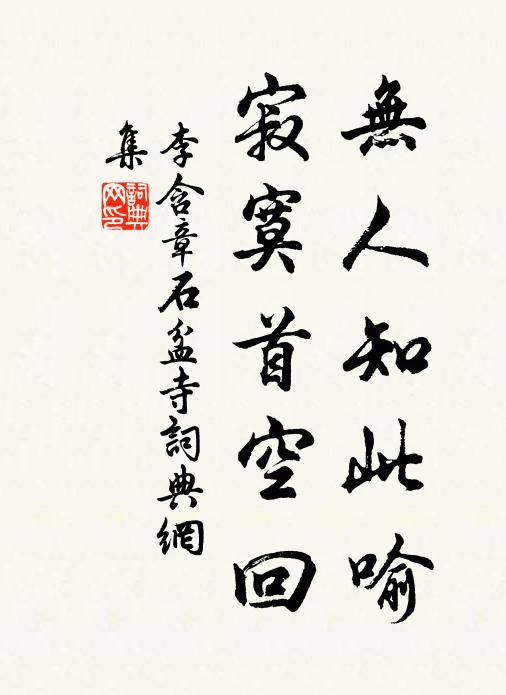 無人知此喻
寂寞首空回
李含章石盆寺詞典網
集
詞典網印